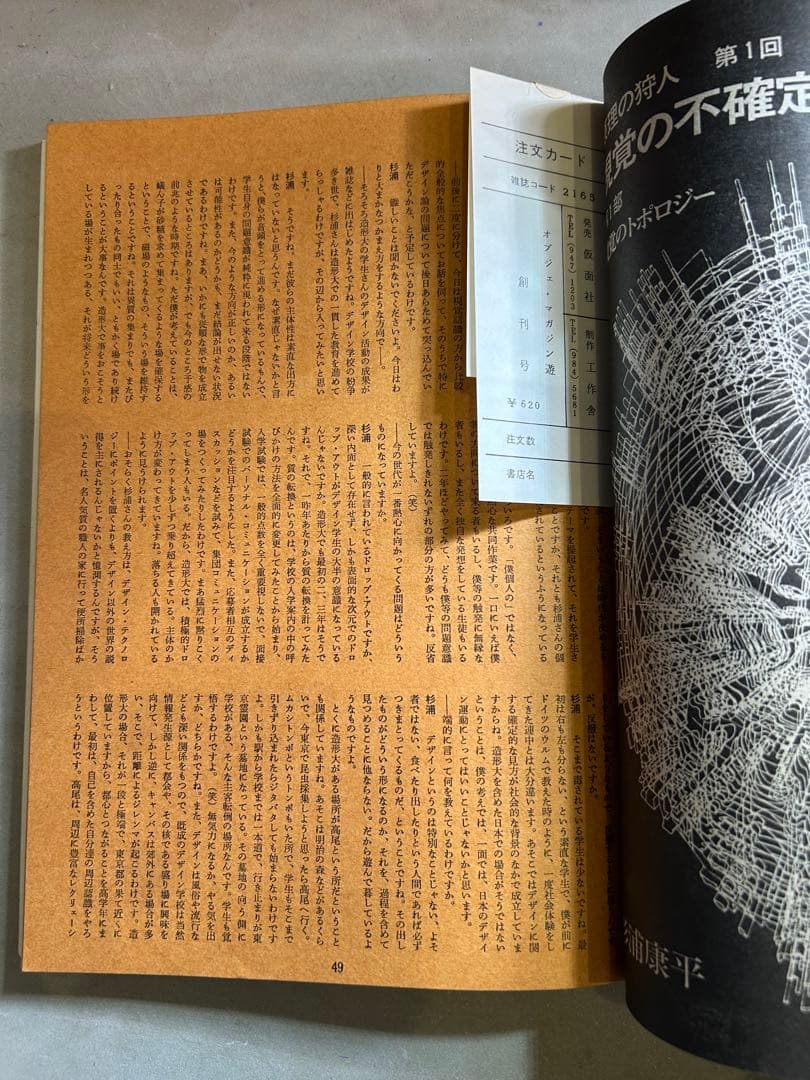 第1回
理の狩人
覚の不確定
部
覚のトポロジー
浦康平
注文カード
雑誌コード 2165
発売 仮面社
TEL (947) 1203
制作 工作舎
TEL (984) 5681
オブジェ・マガジン遊
創刊号
¥620
注文数
書店名
——前後二度に分けて、今日は視覚認識の方から比較
的全般的な焦点についてお話を伺って、そのうちで特に
デザイン論の問題について後日あらためて突っ込んでい
ただこうかな、と予定しているわけです。
杉浦 難しいことは聞かないでくださいよ。今日はわ
りと大まかなつかまえ方をするような方向で——。
——そろそろ造形大の学生さんのデザイン活動の成果が
雑誌などに出はじめたようですね。デザイン学校の紛争
多き世で、杉浦さんは造形大での一貫した教育を進めて
らっしゃるわけですが、その辺から入ってみたいと思い
ます。
杉浦 そうですね。まだ彼らの主体性は素直な出方に
はなっていないと思うんです。なぜ素直じゃないかと言
うと、僕らが音頭をとって進める形になっているもんで、
学生自身の問題意識が純粋に現われて来る段階ではない
わけです。また、今のような方向が正しいのか、あるい
は可能性があるのかどうかも、まだ結論が出せない状況
であるわけですね。まあ、いかにも従順な形で物を成立
させているところはありますが、でも今のところ予感の
前兆のような時期ですね。ただ僕が考えていることは、
蟻ん子が砂糖を求めて集まってくるような場を確保する
ということで、磁場のようなもの、そういう場を維持す
ることですね。それは異質の集まりでも、またぴ
ったり合ったもの同士でもいい、ともかく場であり続け
るということが大事なんです。造形大で事をおこそうと
している場が生まれつつある、それが将来どういう形を
テーマを提起されて、それを学生さ
ことですか、それとも杉浦さんの個
されているというふうになっている
いろです。「僕個人の」ではなく、
心な共同作業です。一口にいえば僕
る者もいるし、僕等の触発に無縁な
者もいるし、また全く独自な発想をしている生徒もいる
わけです。二年ほどやってみて、どうも僕等の問題意識
では触発しきれないずれの部分の方が多いですね。反省
していますよ。(笑)
——今の世代が一番熱心に向かってくる問題はどういう
ものになっていますか。
杉浦 一般的に言われているドロップ・アウトですか、
深い内面として存在せず、しかも表面的な次元でのドロ
ップ・アウトがデザイン学生の大半の意識になっている
んじゃないですか。造形大でも最初の二、三年はそうで
すね。それで、一昨年あたりから質の転換を計ってみた
んです。質の転換というのは、学校の入学案内の中の呼
びかけの方法を全面的に変更してみたことから始まり、
入学試験では、一般的点数を全く重要視しないで、面接
試験でのパーソナル・コミュニケーションが成立するか
どうかを注目するようにした。また、応募者相互のディ
スカッションなどを試みて、集団コミュニケーションの
場をつくってみたりしたわけです。まあ猛烈に黙りこく
ってしまう人もいる。だから、造形大では、積極的ドロ
ップ・アウトを少しずつ乗り超えてきている。主体のか
け方が変わってきていますね。落ちる人も開かれている
ように見うけられます。
——おそらく杉浦さんの教え方は、デザイン・テクノロ
ジーにポイントを置くよりも、デザイン以外の世界の説
得を主にされるんじゃないかと憶測するんですが、そう
いうことは、名人気質の職人の家に行って便所掃除ばか
が、反撥はないですか。
杉浦 そこまで露されている学生は少ないですね。最
初は右も左も分らない、という素直な学生で、僕が前に
ドイツのウルムで教えた時のように、一度社会体験をし
てきた連中とは大分違います。あそこではデザインに関
する確定的な見方が社会的な背景のなかで成立していま
すからね。造形大を含めた日本での場合がそうではない
ということは、僕の考えでは、一面では、日本のデザイ
ン運動にとってはいいことじゃないかと思います。
——端的に言って何を教えているわけですか。
杉浦 デザインというのは特別なことじゃない、よそ
者ではない、食べたり出したりという人間であれば必ず
つきまとってくるものだ、ということですね。その出し
たものがどういう形になるのか、それを、過程を含めて
見つめることに他ならない。だから遊んで暮しているよ
うなものですよ。
とくに造形大がある場所が高尾という所だということ
も関係していますね。あそこは明治の森などがあるくら
いで、今東京で昆虫採集しようと思ったら高尾へ行く。
ムカシトンボというトンボもいた所で、学生もそこまで
引きずり込まれたらジタバタしても始まらないわけです
よ。しかも駅から学校までは一本道で、行き止まりが東
京霊園という墓地になっている。その墓地の向う側に
学校がある、そんな主客転倒の場所なんです。学生も覚
悟するわけですよ。(笑) 無気力になるか、やる気を出
すか、どちらかですね。また、デザインは風俗や流行な
どとも深い関係をもつので、既成のデザイン学校は当然
情報発生源として都会や、その核である盛り場に興味を
向けて、しかし逆に、キャンパスは郊外にある場合が多
い、そこで、距離によるジレンマが起こるわけです。造
形大の場合、それが一段と極端で、東京都の果て近くに
位置していますから、都心とつながることを高学年にま
わして、最初は、自己を含めた自分達の周辺認識をやろ
うというわけです。高尾は、周辺に豊富なレクリェーシ
49